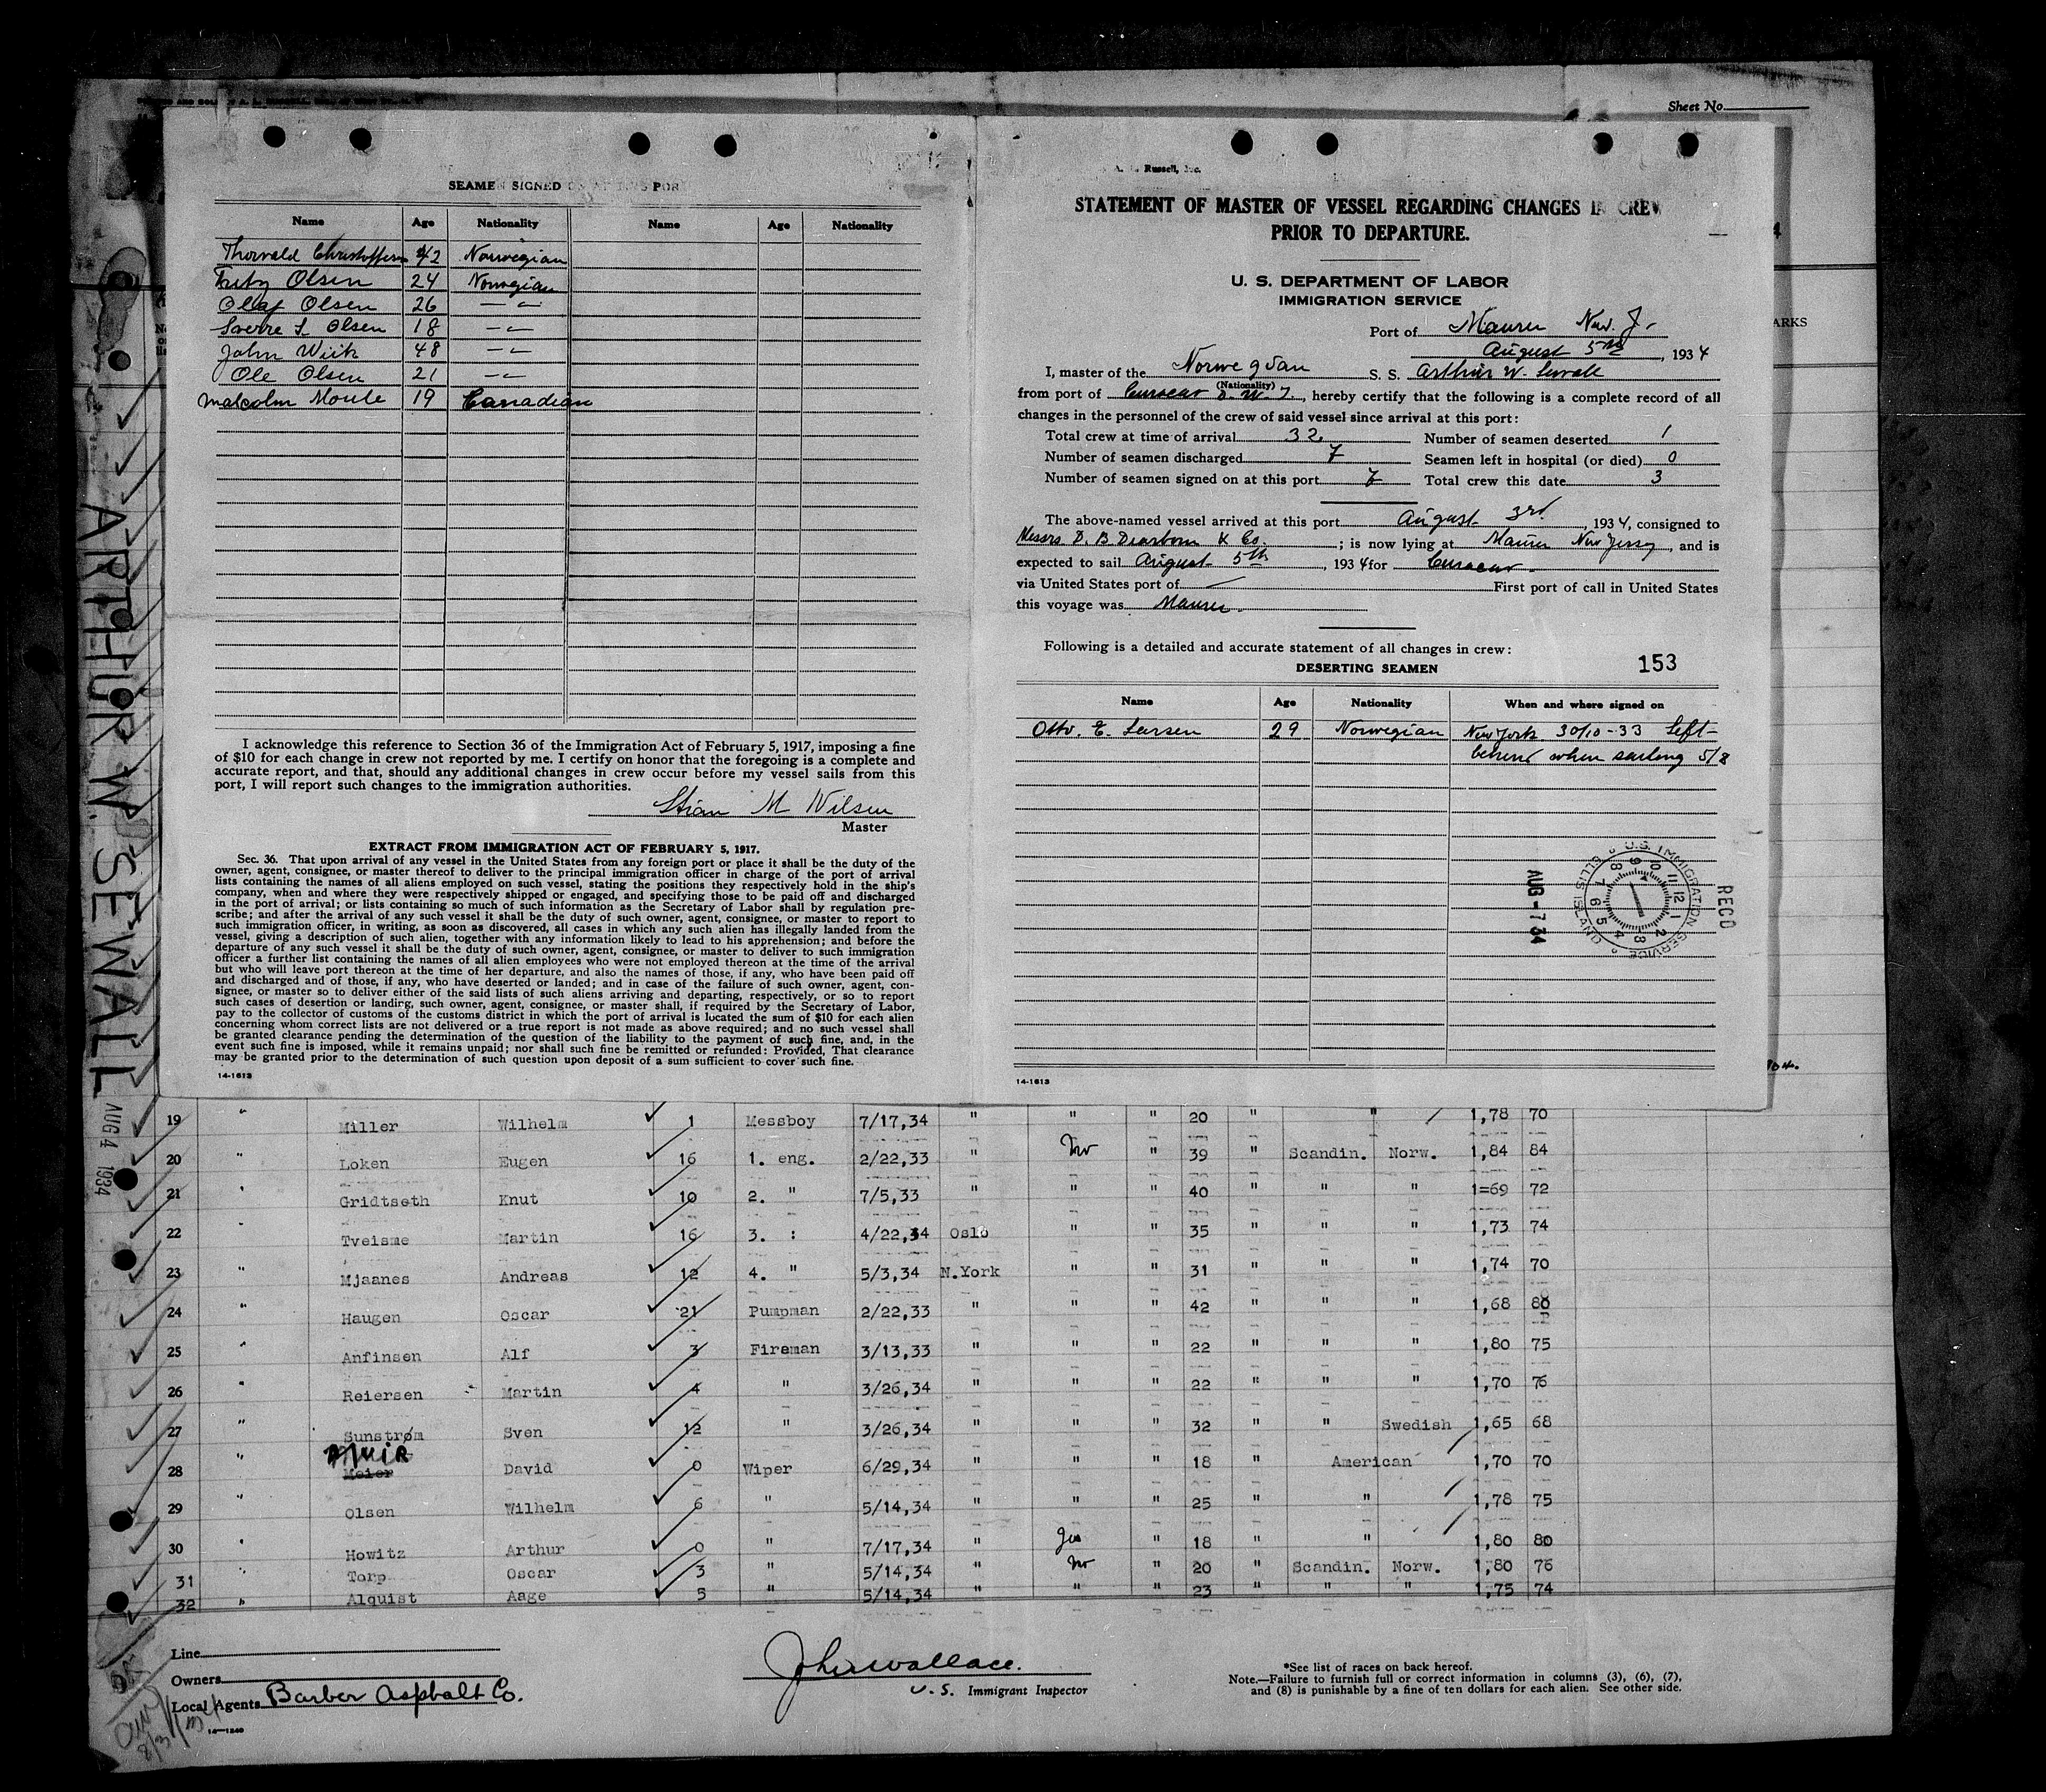 Sheet No.
SEAMEN SIGNED ON AT THIS PORT
Name Age Nationality Name Age Nationality
Thorvald Christoffersen 42 Norwegian
Fritz Olsen 24 Norwegian
Olaf Olsen 26 —"—
Sverre S. Olsen 18 —"—
John Wiik 48 —"—
Ole Olsen 21 —"—
Malcolm Moule 19 Canadian
I acknowledge this reference to Section 36 of the Immigration Act of February 5, 1917, imposing a fine
of $10 for each change in crew not reported by me. I certify on honor that the foregoing is a complete and
accurate report, and that, should any additional changes in crew occur before my vessel sails from this
port, I will report such changes to the immigration authorities.
Stian M Nilsen
Master
EXTRACT FROM IMMIGRATION ACT OF FEBRUARY 5, 1917.
Sec. 36. That upon arrival of any vessel in the United States from any foreign port or place it shall be the duty of the
owner, agent, consignee, or master thereof to deliver to the principal immigration officer in charge of the port of arrival
lists containing the names of all aliens employed on such vessel, stating the positions they respectively hold in the ship's
company, when and where they were respectively shipped or engaged, and specifying those to be paid off and discharged
in the port of arrival; or lists containing so much of such information as the Secretary of Labor shall by regulation pre-
scribe; and after the arrival of any such vessel it shall be the duty of such owner, agent, consignee, or master to report to
such immigration officer, in writing, as soon as discovered, all cases in which any such alien has illegally landed from the
vessel, giving a description of such alien, together with any information likely to lead to his apprehension; and before the
departure of any such vessel it shall be the duty of such owner, agent, consignee, or master to deliver to such immigration
officer a further list containing the names of all alien employees who were not employed thereon at the time of the arrival
but who will leave port thereon at the time of her departure, and also the names of those, if any, who have been paid off
and discharged and of those, if any, who have deserted or landed; and in case of the failure of such owner, agent, con-
signee, or master so to deliver either of the said lists of such aliens arriving and departing, respectively, or so to report
such cases of desertion or landing, such owner, agent, consignee, or master shall, if required by the Secretary of Labor,
pay to the collector of customs of the customs district in which the port of arrival is located the sum of $10 for each alien
concerning whom correct lists are not delivered or a true report is not made as above required; and no such vessel shall
be granted clearance pending the determination of the question of the liability to the payment of such fine, and, in the
event such fine is imposed, while it remains unpaid; nor shall such fine be remitted or refunded: Provided, That clearance
may be granted prior to the determination of such question upon deposit of a sum sufficient to cover such fine.
14-1613
Russell, Inc.
STATEMENT OF MASTER OF VESSEL REGARDING CHANGES IN CREW
PRIOR TO DEPARTURE.
U. S. DEPARTMENT OF LABOR
IMMIGRATION SERVICE
Port of Maurer New. J.
August 5th, 1934
I, master of the Norwegian S. S. Arthur W. Sewall
(Nationality)
from port of Curacao D. W. I., hereby certify that the following is a complete record of all
changes in the personnel of the crew of said vessel since arrival at this port:
Total crew at time of arrival 32 Number of seamen deserted 1
Number of seamen discharged 7 Seamen left in hospital (or died) 0
Number of seamen signed on at this port 7 Total crew this date 3
The above-named vessel arrived at this port August 3rd, 1934, consigned to
Messrs D. B Dearborn & Co. ; is now lying at Maurer New Jersey, and is
expected to sail August 5th, 1934 for Curacao.
via United States port of — First port of call in United States
this voyage was Maurer.
Following is a detailed and accurate statement of all changes in crew:
DESERTING SEAMEN 153
Name Age Nationality When and where signed on
Otto. E. Larsen 29 Norwegian New York 30/10-33 Left
behind when sailing 5/8
U.S. IMMIGRATION SERVICE ELLIS ISLAND
RECD
AUG -7 34
14-1613
ARKS
ARTHUR W. SEWALL
AUG 4 1934
19 " Miller Wilhelm 1 Messboy 7/17,34 " " " 20 " " 1,78 70
20 " Loken Eugen 16 1. eng. 2/22,33 " Nor " 39 " Scandin. Norw. 1,84 84
21 " Gridtseth Knut 10 2. " 7/5,33 " " " 40 " " " 1=69 72
22 " Tveisme Martin 16 3. : 4/22,34 Oslo " " 35 " " 1,73 74
23 " Mjaanes Andreas 12 4. " 5/3,34 N.York " " 31 " " " 1,74 70
24 " Haugen Oscar 21 Pumpman 2/22,33 " " " 42 " " " 1,68 80
25 " Anfinsen Alf 3 Fireman 3/13,33 " " " 22 " " " 1,80 75
26 " Reiersen Martin 4 " 3/26,34 " " " 22 " " " 1,70 76
27 " Sunstrøm Sven 12 " 3/26,34 " " " 32 " " Swedish 1,65 68
Muir
28 " Meier David 0 Wiper 6/29,34 " " " 18 " American 1,70 70
29 " Olsen Wilhelm 6 " 5/14,34 " " " 25 " " 1,78 75
30 " Howitz Arthur 0 " 7/17,34 " " 18 " " 1,80 80
31 " Torp Oscar 3 " 5/14,34 " Nor " 20 " Scandin. Norw. 1,80 76
32 " Alquist Aage 5 " 5/14,34 " " " 23 " " " 1,75 74
Line
Owners
Local Agents Barber Asphalt Co.
14-1240
John Wallace.
U.S. Immigrant Inspector
*See list of races on back hereof.
Note.—Failure to furnish full or correct information in columns (3), (6), (7),
and (8) is punishable by a fine of ten dollars for each alien. See other side.